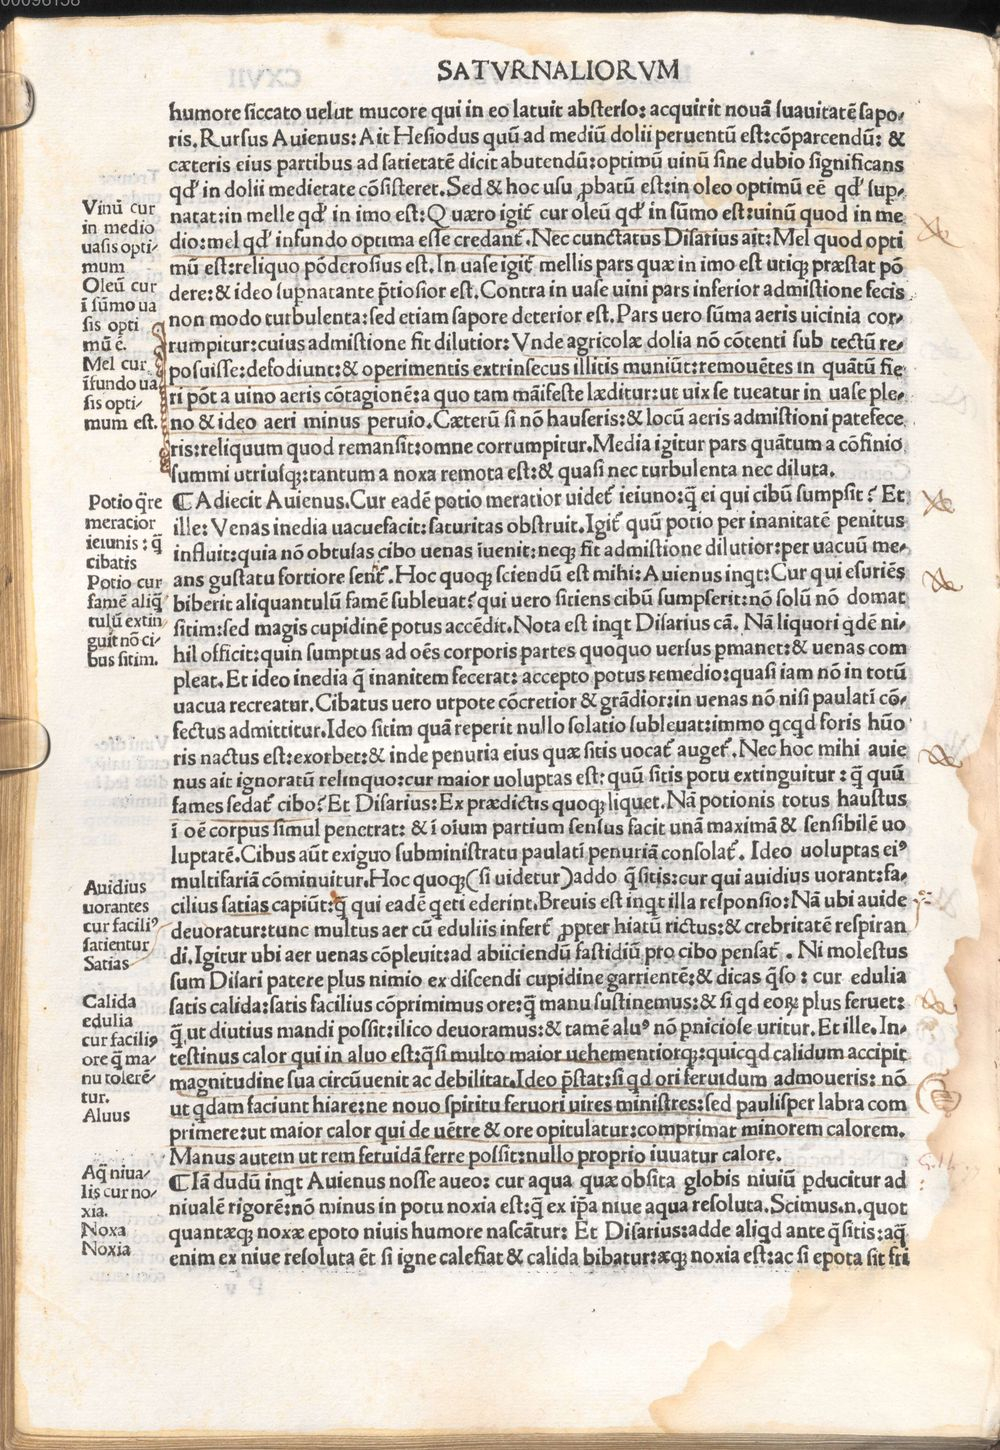 SATVRNALIORVM
humore ſiccato uelut mucore qui in eo latuit abſterſo: acquirit nouā ſuauitatē ſapo⸗
ris. Rurſus Auienus: Ait Heſiodus quū ad mediū dolii peruentū eſt: cōparcendū: &
cæteris eius partibus ad ſatietatē dicit abutendū: optimū uinū ſine dubio ſignificans
qd' in dolii medietate cōſiſteret. Sed & hoc uſu ꝓbatū eſt: in oleo optimū eē qd' ſup⸗
natat: in melle qd' in imo eſt: Quæro igit̃ cur oleū qd' in ſūmo eſt: uinū quod in me
dio: mel qd' infundo optima eſſe credant̃. Nec cunctatus Diſarius ait: Mel quod opti
mū eſt: reliquo pōderoſius eſt. In uaſe igit̃ mellis pars quæ in imo eſt utiqꝫ præſtat pō
dere: & ideo ſupnatante p̄tioſior eſt. Contra in uaſe uini pars inferior admiſtione fecis
non modo turbulenta: ſed etiam ſapore deterior eſt. Pars uero ſūma aeris uicinia cor⸗
rumpitur: cuius admiſtione fit dilutior: Vnde agricolæ dolia nō cōtenti ſub tectū re⸗
poſuiſſe: defodiunt: & operimentis extrinſecus illitis muniūt: remouētes in quātū fie
ri pōt a uino aeris cōtagionē: a quo tam māifeſte læditur: ut uix ſe tueatur in uaſe ple⸗
no & ideo aeri minus peruio. Cæterū ſi nō hauſeris: & locū aeris admiſtioni patefece
ris: reliquum quod remanſit: omne corrumpitur. Media igitur pars quātum a cōfinio
ſummi utriuſqꝫ: tantum a noxa remota eſt: & quaſi nec turbulenta nec diluta.
Vinū cur
in medio
uaſis opti⸗
mum
Oleū cur
ī ſūmo ua
ſis opti
mū ē.
Mel cur
īfundo ua
ſis opti⸗
mum eſt.
¶ Adiecit Auienus. Cur eadē potio meratior uidet̃ ieiuno: q̄ ei qui cibū ſumpſit? Et
ille: Venas inedia uacuefacit: ſaturitas obſtruit. Igit̃ quū potio per inanitatē penitus
influit: quia nō obtuſas cibo uenas īuenit: neqꝫ fit admiſtione dilutior: per uacuū me⸗
ans guſtatu fortiore ſent̃. Hoc quoqꝫ ſciendū eſt mihi: Auienus inqt: Cur qui eſuriēs
biberit aliquantulū famē ſubleuat? qui uero ſitiens cibū ſumpſerit: nō ſolū nō domat
ſitim: ſed magis cupidinē potus accēdit. Nota eſt inqt Diſarius cā. Nā liquori qdē ni⸗
hil officit: quin ſumptus ad oēs corporis partes quoquo uerſus pmanet: & uenas com
pleat. Et ideo inedia q̄ inanitem fecerat: accepto potus remedio: quaſi iam nō in totū
uacua recreatur. Cibatus uero utpote cōcretior & grādior: in uenas nō niſi paulatī cō⸗
fectus admittitur. Ideo ſitim quā reperit nullo ſolatio ſubleuat: immo qcqd foris hūo
ris nactus eſt: exorbet: & inde penuria eius quæ ſitis uocat̃ auget̃. Nec hoc mihi auie
nus ait ignoratū relinquo: cur maior uoluptas eſt: quū ſitis potu extinguitur: q̄ quū
fames ſedat̃ cibo? Et Diſarius: Ex prædictis quoqꝫ liquet. Nā potionis totus hauſtus
ī oē corpus ſimul penetrat: & ī oium partium ſenſus facit unā maximā & ſenſibilē uo
luptatē. Cibus aūt exiguo ſubminiſtratu paulatī penuriā conſolat̃. Ideo uoluptas eiꝰ
multifariā cōminuitur. Hoc quoqꝫ (ſi uidetur) addo q̄ſitis: cur qui auidius uorant: fa⸗
cilius ſatias capiūt: q̄ qui eadē qeti ederint. Breuis eſt inqt illa reſponſio: Nā ubi auide
deuoratur: tunc multus aer cū eduliis infert̃ ꝓpter hiatū rictus: & crebritatē reſpiran
di. Igitur ubi aer uenas cōpleuit: ad abiiciendū faſtidiū pro cibo penſat̃. Ni moleſtus
ſum Diſari patere plus nimio ex diſcendi cupidine garrientē: & dicas q̄ſo: cur edulia
ſatis calida: ſatis facilius cōprimimus ore: q̄ manu ſuſtinemus: & ſi qd eoꝝ plus feruet:
q̄ ut diutius mandi poſſit: ilico deuoramus: & tamē aluꝰ nō pnicioſe uritur. Et ille. In⸗
teſtinus calor qui in aluo eſt: q̄ſi multo maior uehementiorqꝫ: quicqd calidum accipit
magnitudine ſua circūuenit ac debilitat. Ideo p̄ſtat: ſi qd ori feruidum admoueris: nō
ut qdam faciunt hiare: ne nouo ſpiritu feruori uires miniſtres: ſed pauliſper labra com
primere: ut maior calor qui de uētre & ore opitulatur: comprimat minorem calorem.
Manus autem ut rem feruidā ferre poſſit: nullo proprio iuuatur calore.
Potio q̄re
meracior
ieiunis: q̄
cibatis
Potio cur
famē aliq̄
tulū extin
guit nō ci⸗
bus ſitim.
Auidius
uorantes
cur faciliꝰ
ſatientur
Satias
Calida
edulia
cur faciliꝰ
ore q̄ ma⸗
nu tolerē⸗
tur.
Aluus
¶ Iā dudū inqt Auienus noſſe aueo: cur aqua quæ obſita globis niuiū pducitur ad
niualē rigorē: nō minus in potu noxia eſt: q̄ ex ip̄a niue aqua reſoluta. Scimus .n. quot
quantæqꝫ noxæ epoto niuis humore naſcātur: Et Diſarius: adde aliqd ante q̄ſitis: aq̄
enim ex niue reſoluta ēt ſi igne calefiat & calida bibatur: æqꝫ noxia eſt: ac ſi epota ſit fri
Aq̄ niua⸗
lis cur no⸗
xia.
Noxa
Noxia